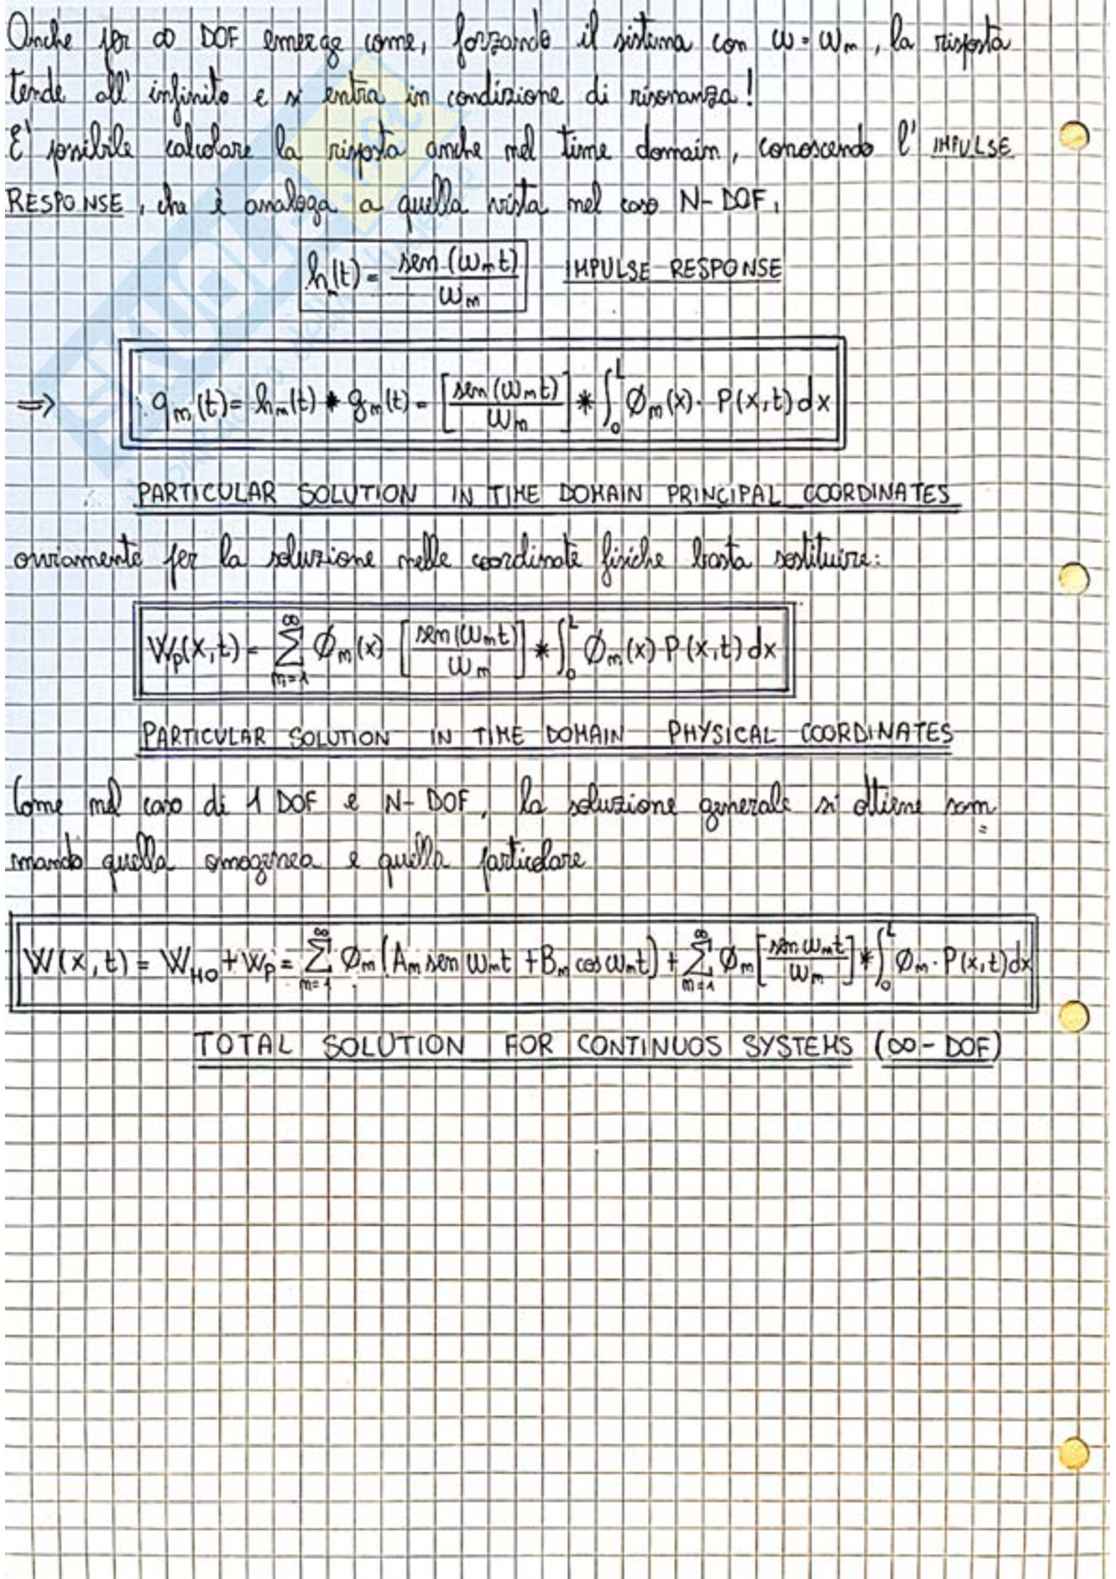 Anche per ∞ DOF emerge come, forzando il sistema con ω=ωm, la risposta
tende all' infinito e si entra in condizione di risonanza!
E' possibile calcolare la risposta anche nel time domain, conoscendo l' IMPULSE
RESPONSE, che è analoga a quella vista nel caso N-DOF,
hm(t) = sen(ωmt)/ωm IMPULSE RESPONSE
⇒ qm(t) = hm(t) * gm(t) = [sen(ωmt)/ωm] * ∫₀ᴸ Øm(x)· P(x,t)dx
PARTICULAR SOLUTION IN TIME DOMAIN PRINCIPAL COORDINATES
ovviamente per la soluzione nelle coordinate fisiche basta sostituire:
Wp(x,t) = Σ m=1 ∞ Øm(x) [sen(ωmt)/ωm] * ∫₀ᴸ Øm(x) P(x,t)dx
PARTICULAR SOLUTION IN TIME DOMAIN PHYSICAL COORDINATES
Come nel caso di 1 DOF e N-DOF, la soluzione generale si ottiene som=
mando quella omogenea e quella particolare
W(x,t) = WHO + Wp = Σ m=1 ∞ Øm(Am sen ωmt + Bm cos ωmt) + Σ m=1 ∞ Øm[sen ωmt/ωm] * ∫₀ᴸ Øm· P(x,t)dx
TOTAL SOLUTION FOR CONTINUOS SYSTEMS (∞-DOF)